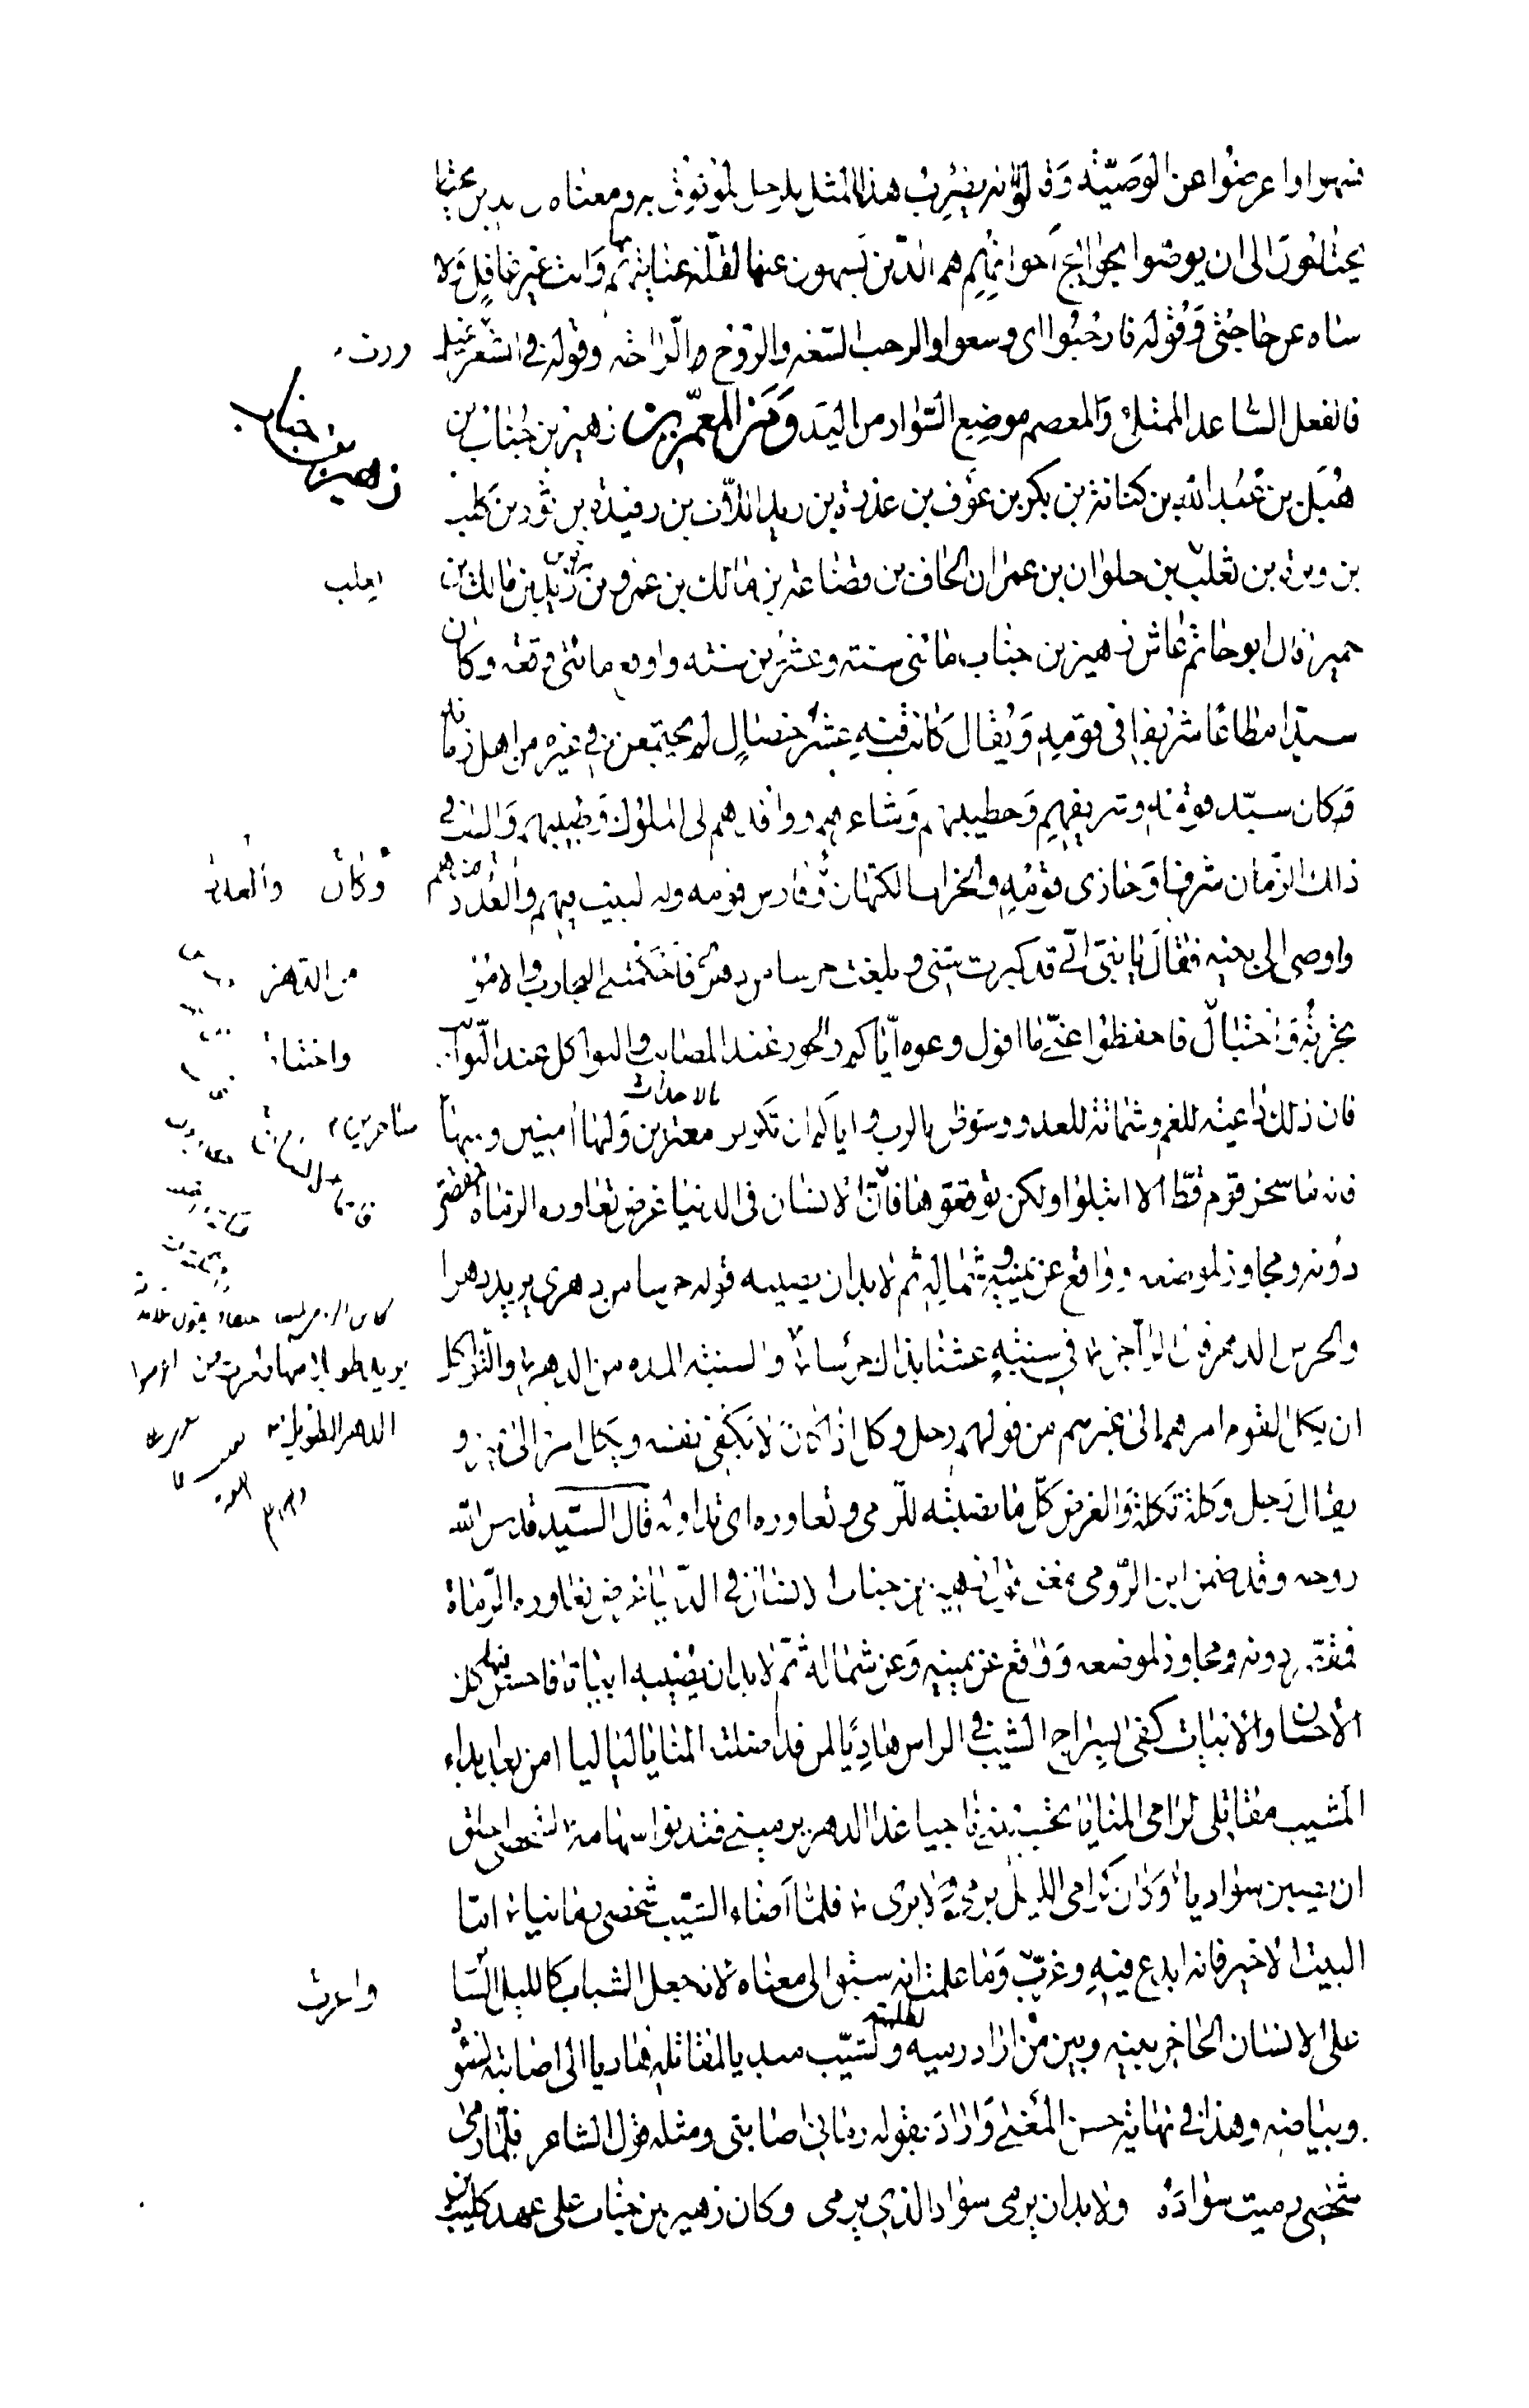 فسهوا واعرضوا عن الوصية وقالوا انه يضرب هذا المثل للرجل الموثوق به ومعناه
يحتاجون الى ان يوصوا بحوائج اخوانهم هم الذين يسهون عنها لقلة عنايتهم بها وانت غير غافل ولا
ساه عن حاجتى وقوله فارحبوا اى وسعوا والرحب السعة والروح والراحة وقوله فى الشعر عبل
فالفعل الساعد الممتلئ والمعصم موضع السوار من اليد ومن المعمرين زهير بن جناب بن
زهير بن جناب
هبل بن عبد الله بن كنانة بن بكر بن عوف بن عذرة بن زيد اللات بن رفيدة بن ثور بن كلب
بن وبرة بن تغلب بن حلوان بن عمران الحاف بن قضاعة بن مالك بن عمرو بن زيد بن مالك بن
حمير قال ابو حاتم عاش زهير بن جناب مائتى سنة وعشرين سنة واوقع مائتى وقعة وكان
سيدا مطاعا شريفا فى قومه ويقال كانت فيه عشر خصال لم يجتمعن فى غيره من اهل زمانه
وكان سيد قومه وشريفهم وخطيبهم وشاعرهم ووافدهم الى الملوك وطبيبهم والطب فى
ذلك الزمان شرف وحازى قومه والحزاة الكهان وفارس قومه وله البيت فيهم والعدد منهم
واوصى الى بنيه فقال يا بنى انى قد كبرت سنى وبلغت حرسا من دهرى فاحكمتنى التجارب والامور
من الدهر
تجربة واختبال فاحفظوا عنى ما اقول وعوه اياكم والخور عند المصائب والتواكل عند النوائب
فان ذلك داعية للغم وشماتة للعدو وسوء ظن بالرب واياكم ان تكونوا بالاحداث مغترين ولها امنين ومنها
ساخرين
فانه ما سخر قوم قط الا ابتلوا ولكن توقعوها فان الانسان فى الدنيا غرض تعاوره الرماة فمقصر
دونه ومجاوز لموضعه وواقع عن يمينه وشماله ثم لا بد ان يصيبه قوله حرسا من دهرى يريد دهرا
والحرس الدهر قال الراجز فى سنبة عشنا بذاك حرسا والسنبة المدة من الدهر والتواكل
ان يكل القوم امرهم الى غيرهم من قولهم رجل وكل اذا كان لا يكفى نفسه ويكل امره الى غيره و
يقال رجل وكلة تكلة والغرض كل ما نصبته للرمى وتعاوره اى تداوله قال السيد قدس الله
روحه وقد ضمن ابن الرومى معنى قول زهير بن جناب الانسان فى الدنيا غرض تعاوره الرماة
فمقصر دونه ومجاوز لموضعه وواقع عن يمينه وعن شماله ثم لا بد ان يصيبه ابياتا فاحسن فيها كل
الاحسان والابيات كفى بسراج الشيب فى الراس هاديا لمن قد اضلته المنايا لياليا امن بعد ابداء
المشيب مقاتلى لرامى المنايا تحسبينى ناجيا غدا الدهر يرمينى فتدنوا سهامه لشخصى اخلق
ان يصبن سواديا وكان كرامى الليل يرمى ولا يرى فلما اضاء الشيب شخصى رمانيا اما
البيت الاخير فانه ابدع فيه وغرب وما علمت انه سبق الى معناه لانه جعل الشباب كالليل الساتر
واغرب
على الانسان الحاجز بينه وبين من اراد رميه لظلمته والشيب مبديا لمقاتله هاديا الى اصابته لضوئه
وبياضه وهذا فى نهاية حسن المعنى واراد بقوله رمانى اصابنى ومثله قول الشاعر فلما رمى
شخصى رميت سواده ولا بد ان يرمى سواد الذى يرمى وكان زهير بن جناب على عهد كليب بن